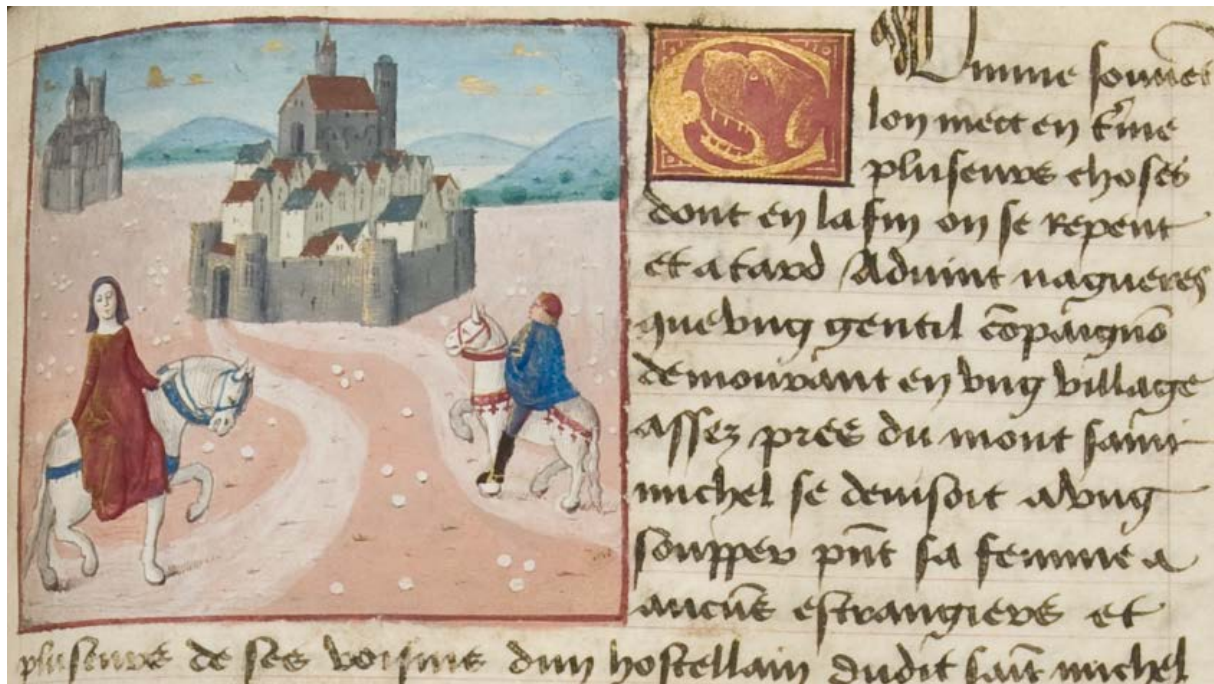 Comme souvent
lon mect en t̄me
pluseurs choses
dont en la fin on se repent
et a tard Aduint nagueres
que vng gentil cōpaignō
demourant en vng village
assez pres du mont saint
michel se deuisoit a vng
soupper pn̄t sa femme a
aucūs estrangiers et
pluseurs de ses voisins dun hostellain dudit saīt michel